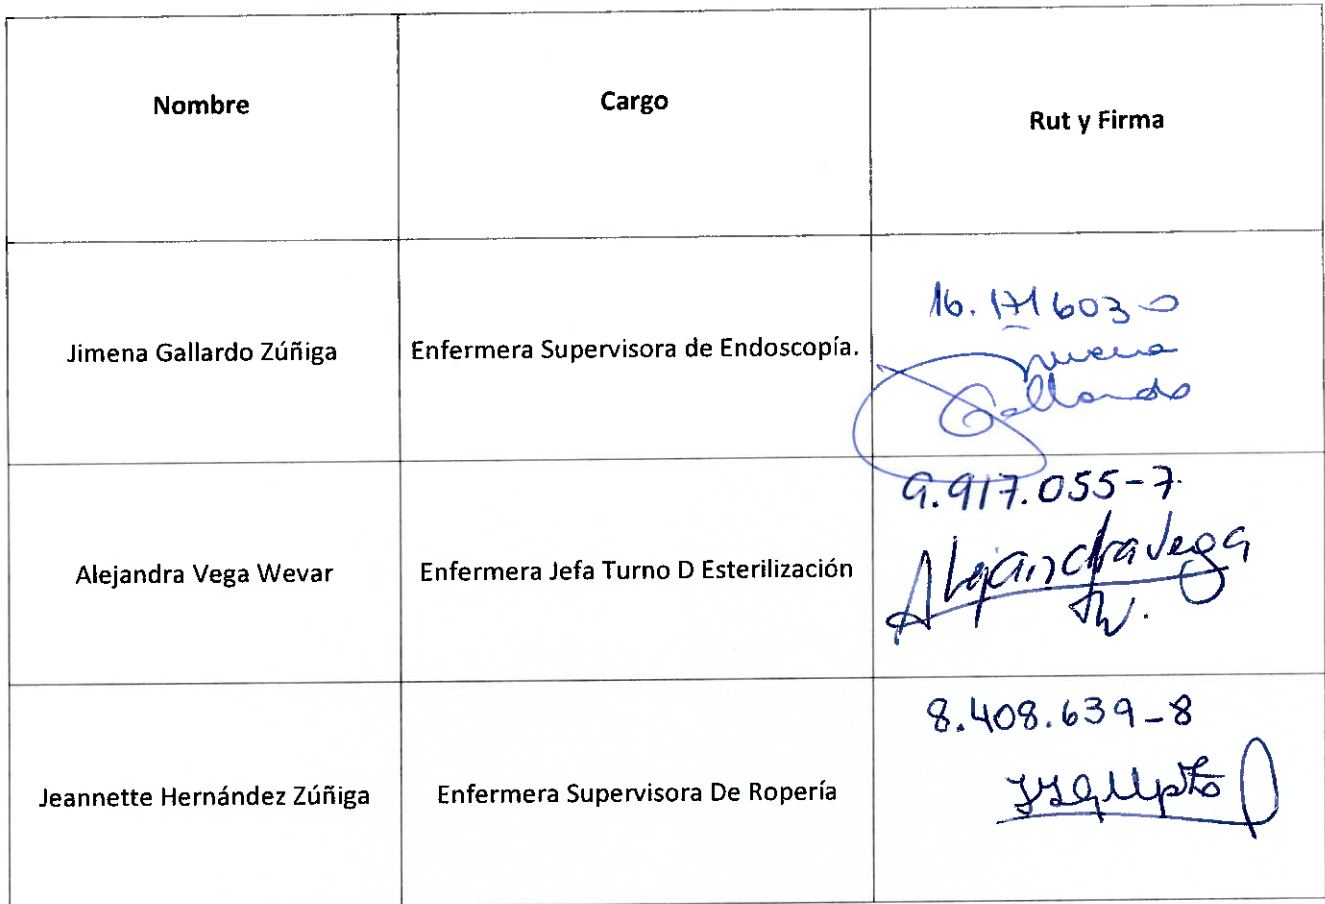 Nombre Cargo Rut y Firma
Jimena Gallardo Zúñiga Enfermera Supervisora de Endoscopía. 16.171603-0
Gallardo
Alejandra Vega Wevar Enfermera Jefa Turno D Esterilización 9.917.055-7
Alejandra Vega
W.
Jeannette Hernández Zúñiga Enfermera Supervisora De Ropería 8.408.639-8